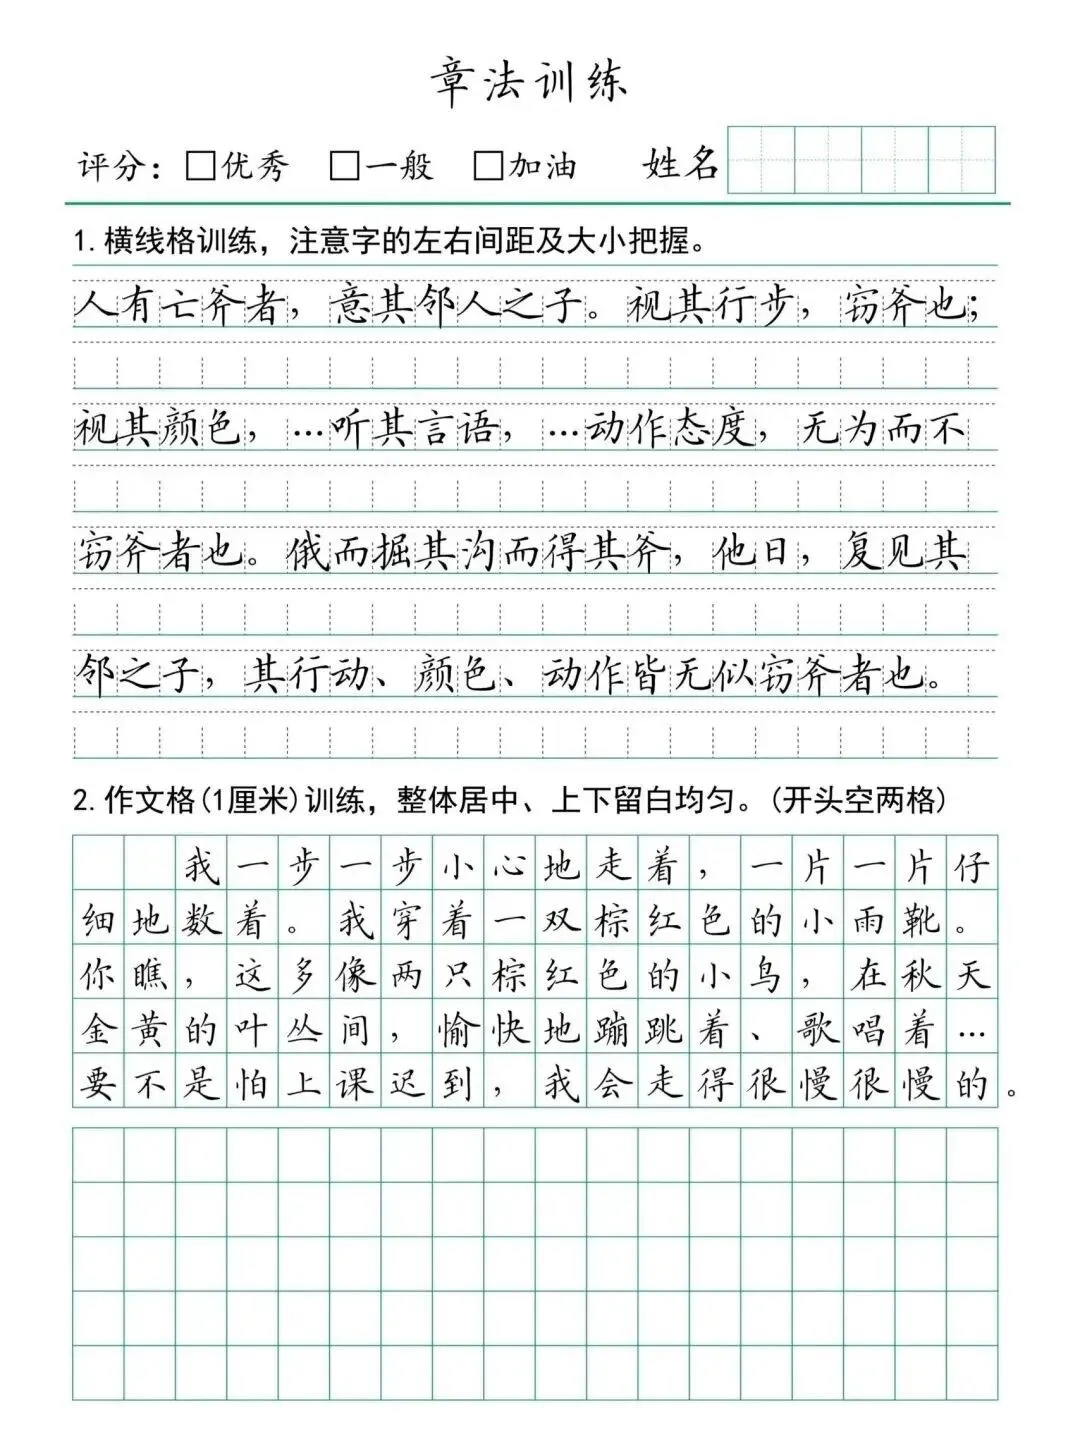 章法训练
评分：□优秀 □一般 □加油 姓名
1.横线格训练，注意字的左右间距及大小把握。
人有亡斧者，意其邻人之子。视其行步，窃斧也；
视其颜色，…听其言语，…动作态度，无为而不
窃斧者也。俄而掘其沟而得其斧，他日，复见其
邻之子，其行动、颜色、动作皆无似窃斧者也。
2.作文格(1厘米)训练，整体居中、上下留白均匀。(开头空两格)
我一步一步小心地走着，一片一片仔
细地数着。我穿着一双棕红色的小雨靴。
你瞧，这多像两只棕红色的小鸟，在秋天
金黄的叶丛间，愉快地蹦跳着、歌唱着…
要不是怕上课迟到，我会走得很慢很慢的。